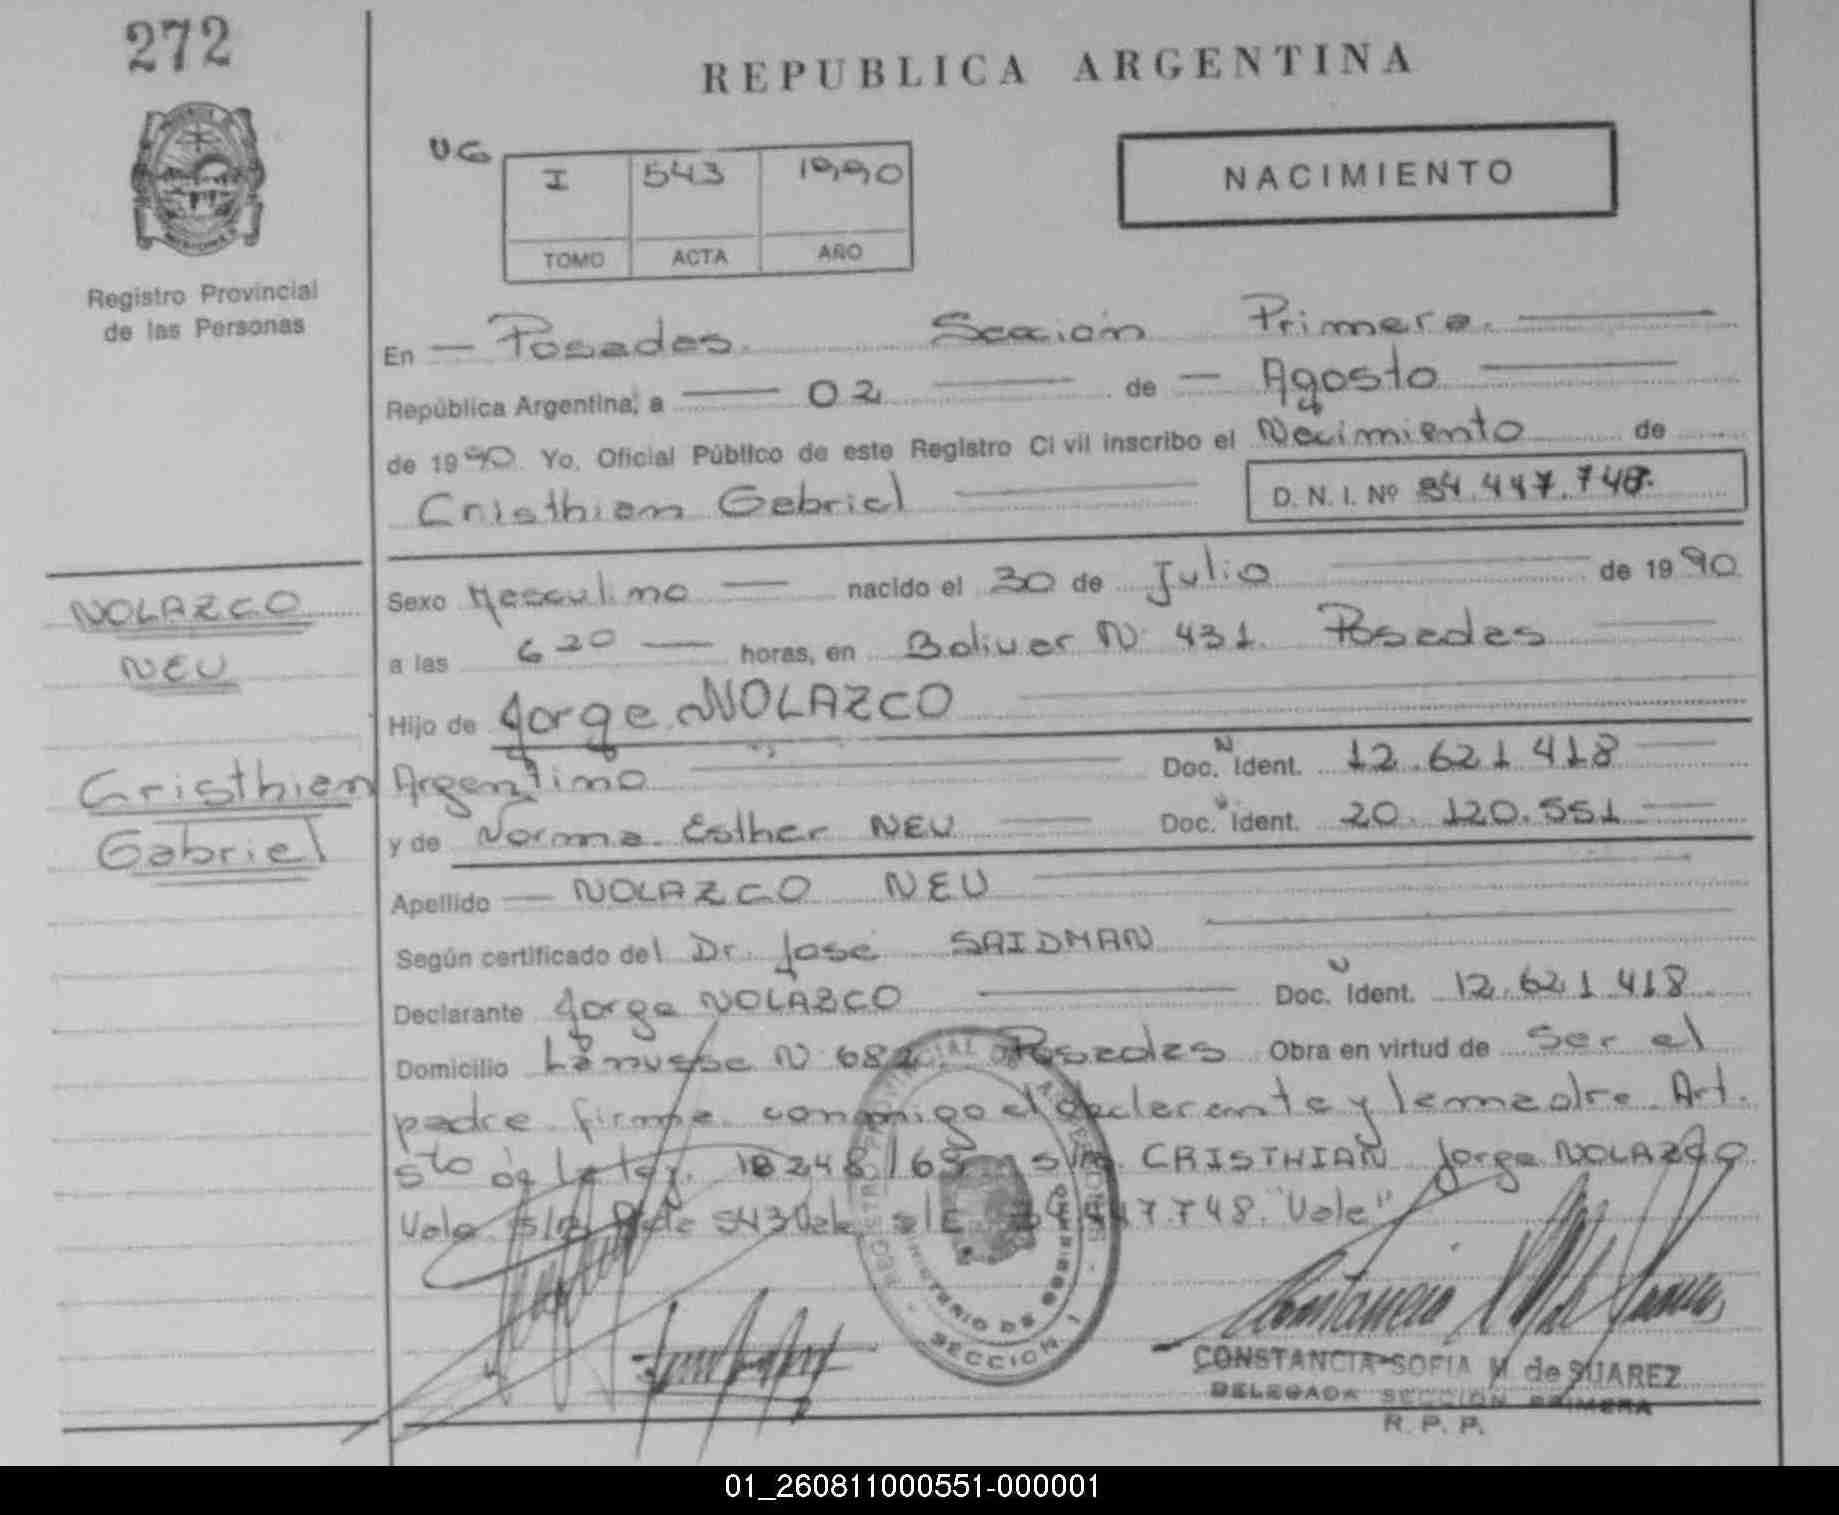 272
REPUBLICA ARGENTINA
UG
I 543 1990
TOMO ACTA AÑO
NACIMIENTO
Registro Provincial
de las Personas
En Posadas. Sección Primera.
República Argentina, a 02 de Agosto
de 1990. Yo, Oficial Público de este Registro Civil inscribo el Nacimiento de
Cristhian Gabriel D. N. I. Nº 34.447.748.
NOLAZCO
NEU
Cristhian
Gabriel
Sexo Masculino nacido el 30 de Julio de 1990
a las 6 20 horas, en Bolivar N 431. Posadas
Hijo de Jorge NOLAZCO
Argentino Doc. Ident. 12.621.418
y de Norma Esther NEU Doc. Ident. 20.120.551
Apellido NOLAZCO NEU
Según certificado del Dr. José SAIDMAN
Declarante Jorge NOLAZCO Doc. Ident. 12.621.418
Domicilio Lanusse N Posadas Obra en virtud de ser el
padre firma conmigo el declarante y la madre Art.
5to de la Ley. 18248/69 CRISTHIAN Jorge NOLAZCO
Vale. 543 Vale 34.447.748. "Vale"
REGISTRO PROVINCIAL DE LAS PERSONAS
MINISTERIO DE GOBIERNO
SECCION 1
CONSTANCIA SOFIA M. de SUAREZ
DELEGADA SECCION PRIMERA
R. P. P.
01_260811000551-000001